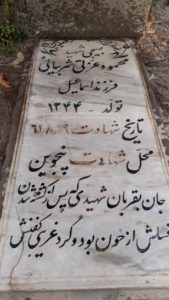 محمود عزتی شربیانی
فرزند اسماعیل
تولد - ۱۳۴۴
تاریخ شهادت ۶۱٫۸٫۱۹
محل شهادت پنجوین
جان بقربان شهیدی که پس از کشته شدن
غسلش از خون بود و گرد عربی کفنش